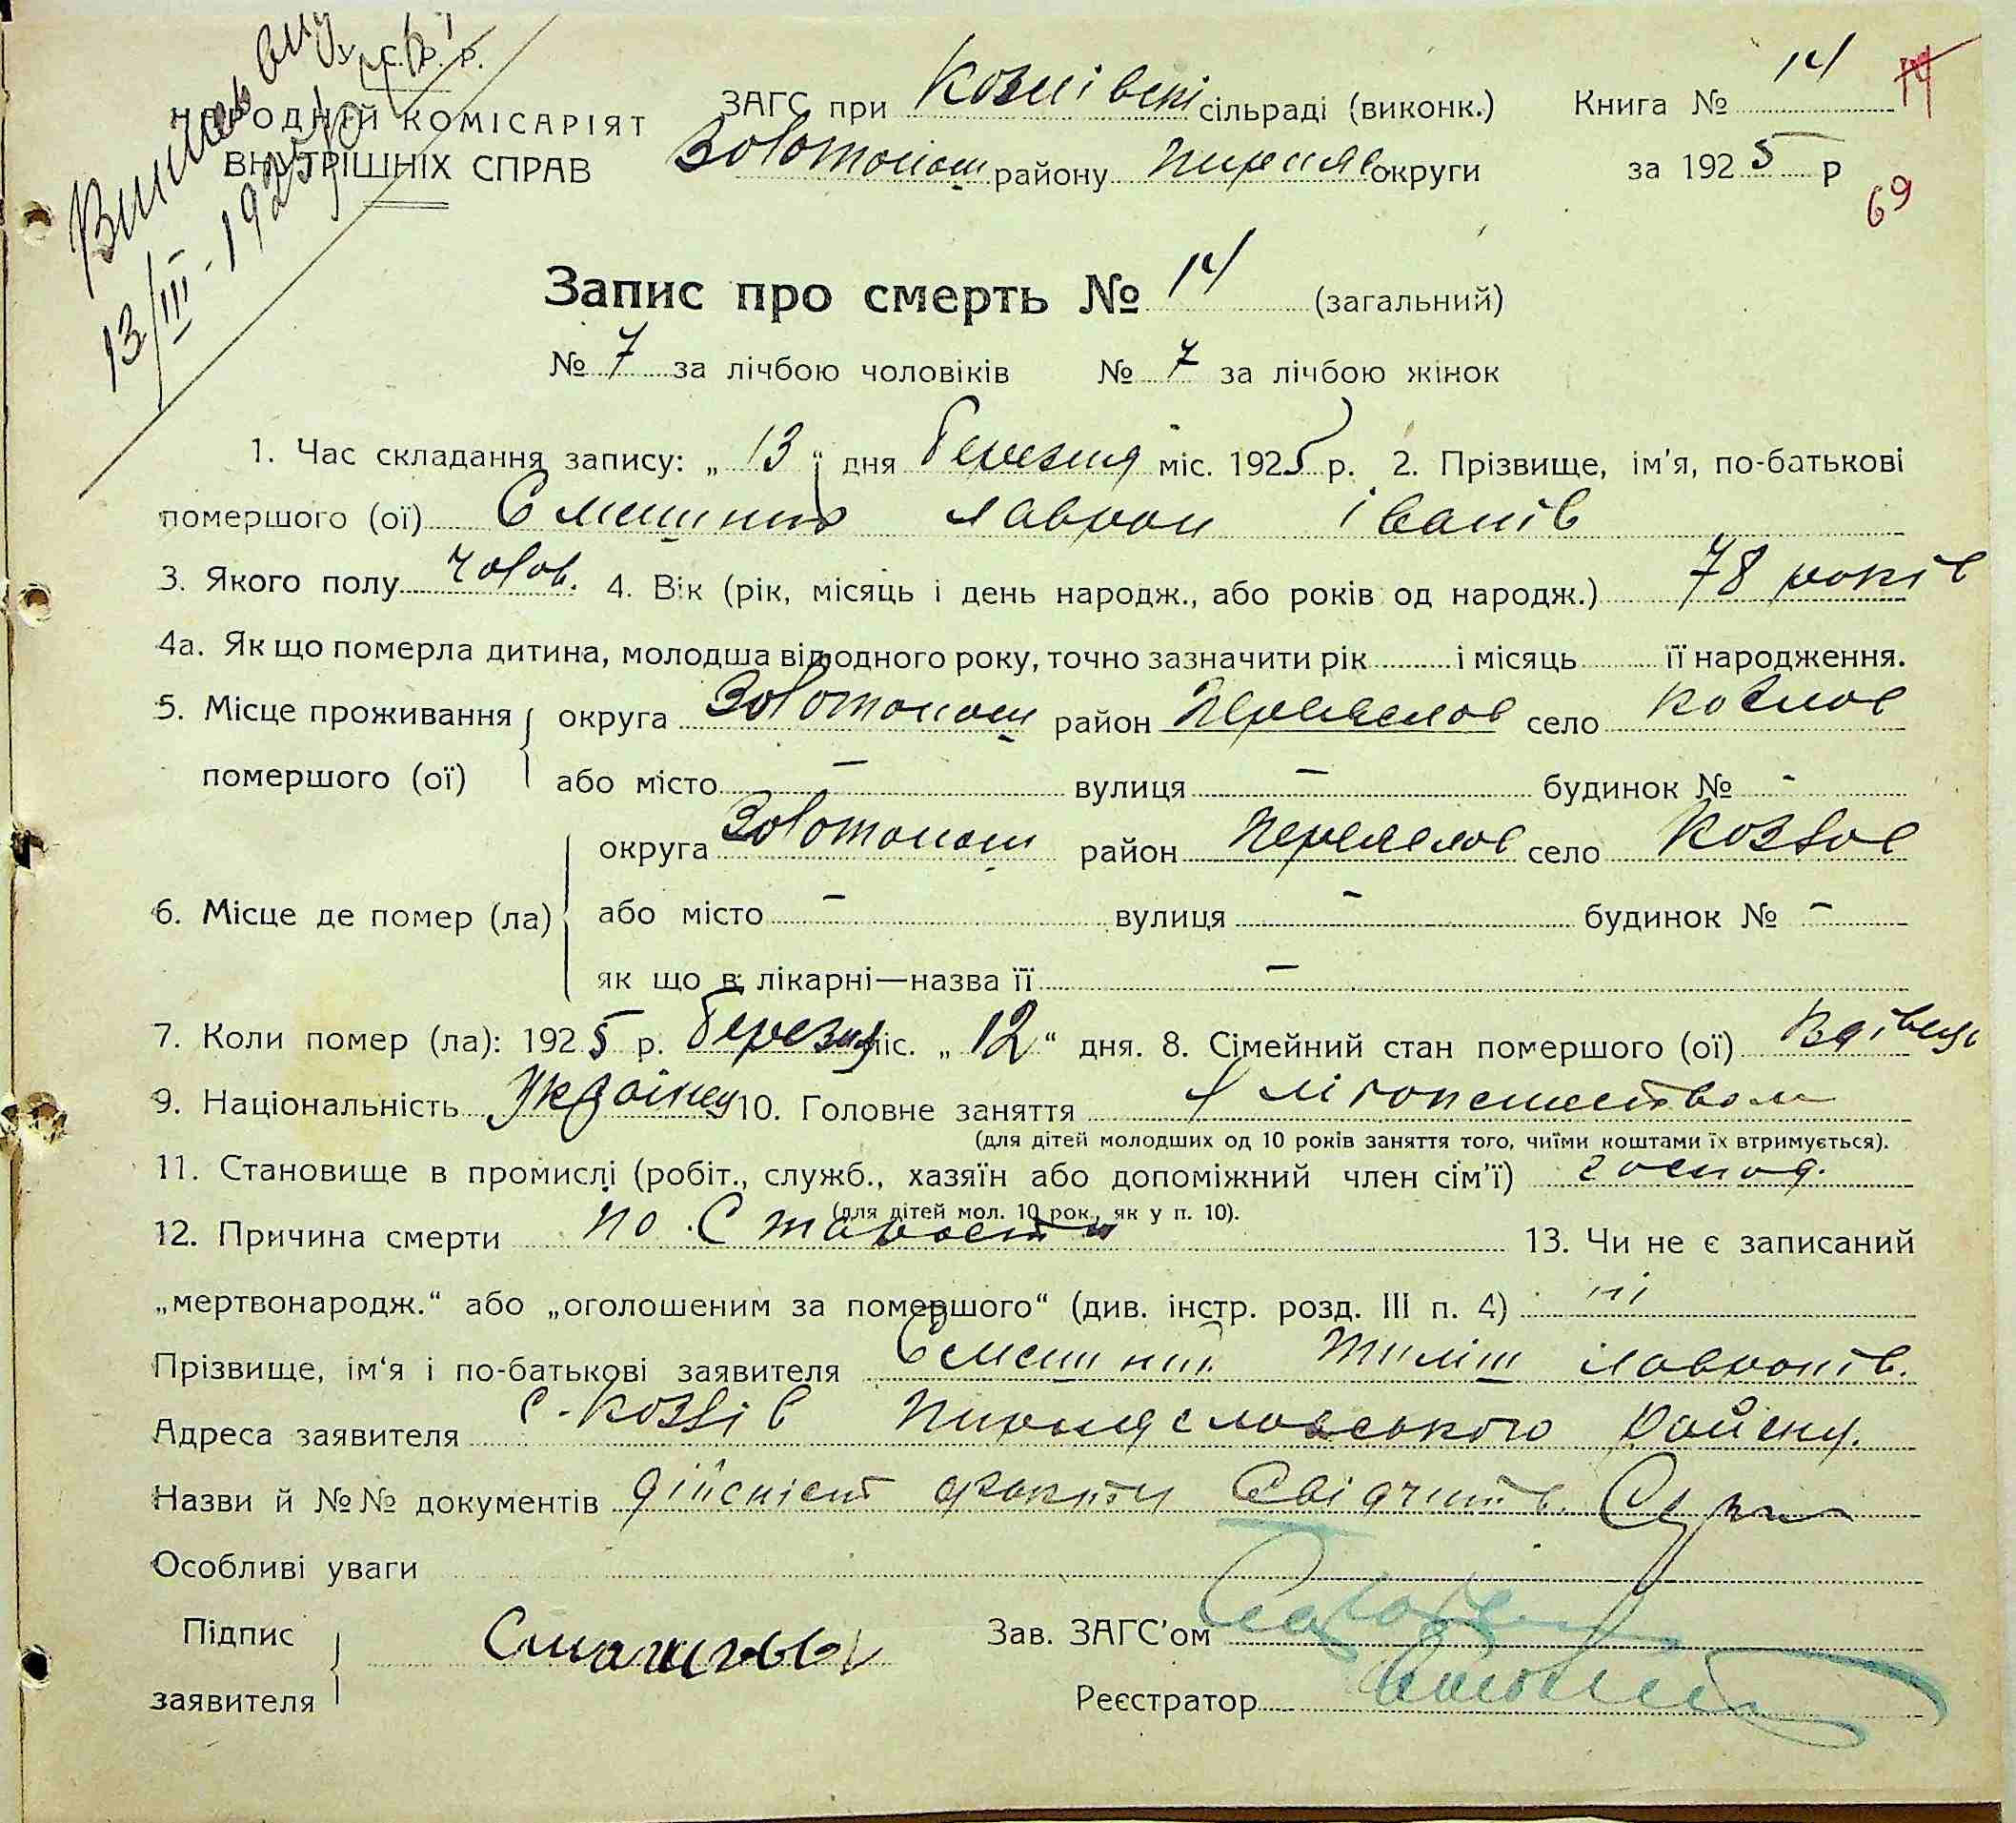 У. С. Р. Р.
НАРОДНІЙ КОМІСАРІЯТ
ВНУТРІШНІХ СПРАВ
13/III - 1925
ЗАГС при Козлівскі сільраді (виконк.) Книга № 14
Золотонош району округи за 1925 р
69
Запис про смерть № 14 (загальний)
№ 7 за лічбою чоловіків № 7 за лічбою жінок
1. Час складання запису: „ 13 “ дня березня міс. 1925 р. 2. Прізвище, ім'я, по-батькові
помершого (ої) Лаврон Іванів
3. Якого полу чолов. 4. Вік (рік, місяць і день народж., або років од народж.) 78 років
4а. Як що померла дитина, молодша від одного року, точно зазначити рік і місяць її народження.
5. Місце проживання округа Золотонош район Переяслов село Козлов
помершого (ої) або місто — вулиця — будинок № -
округа Золотонош район Переяслов село Козлов
6. Місце де помер (ла) або місто — вулиця — будинок № —
як що в лікарні—назва її —
7. Коли помер (ла): 1925 р. березня міс. „ 12 “ дня. 8. Сімейний стан помершого (ої) Вдівець
9. Національність Українец 10. Головне заняття
(для дітей молодших од 10 років заняття того, чиїми коштами їх втримується).
11. Становище в промислі (робіт., служб., хазяїн або допоміжний член сім'ї) господ.
(для дітей мол. 10 рок., як у п. 10).
12. Причина смерти по Старости 13. Чи не є записаний
„мертвонародж.“ або „оголошеним за помершого“ (див. інстр. розд. III п. 4) ні
Прізвище, ім'я і по-батькові заявителя Лавронів.
Адреса заявителя с. Козлів Пирияславського Району.
Назви й №№ документів дійсніст факту Свідчить.
Особливі уваги
Підпис
заявителя
Зав. ЗАГС'ом
Реєстратор